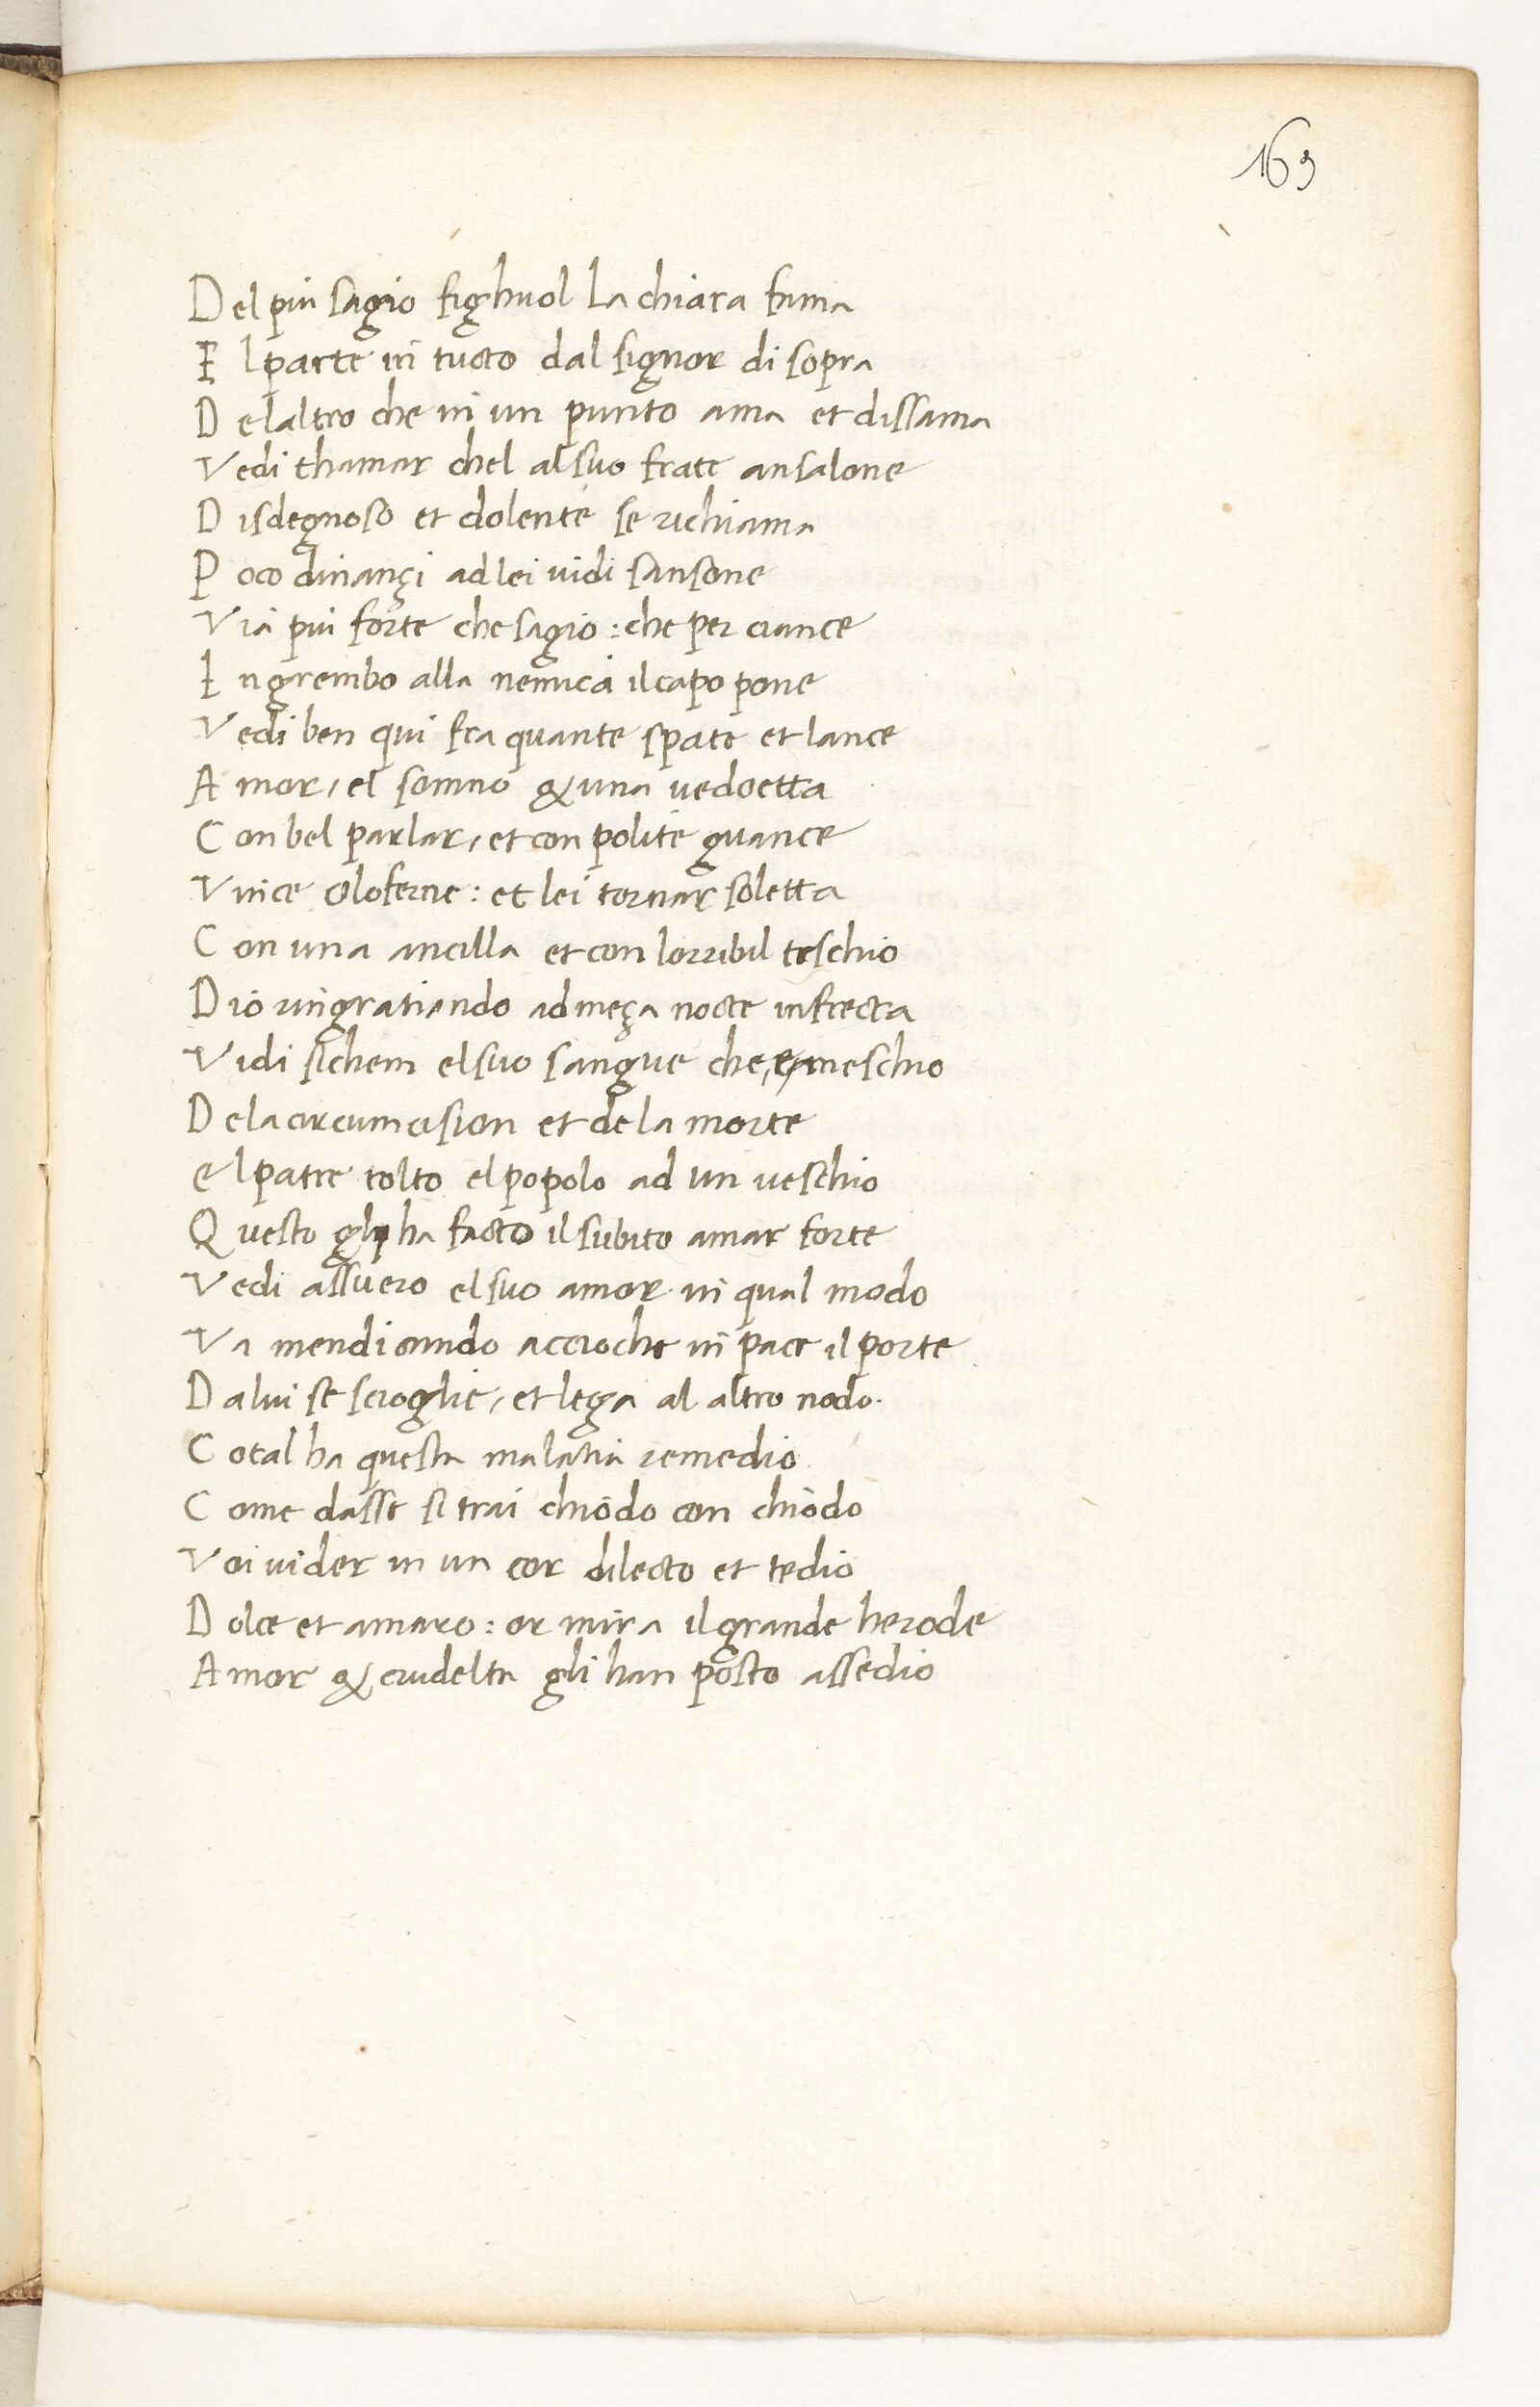 169
Del piu sagio figluol La chiara fama
El parte in tucto dal signor di sopra
Del altro che in un punto ama et dissama
Vedi thamar chel al suo frate ansalone
Disdegnoso et dolente se richiama
Poco dinançi ad lei uidi sansone
Via piu forte che sagio: che per ciance
In grembo alla nemica il capo pone
Vedi ben qui fra quante spate et lance
Amor, el somno & una uedoetta
Con bel parlar, et con polite guance
Vince oloferne: et lei tornar soletta
Con una ancilla et con lorribil teschio
Dio ringratiando ad meça nocte in frecta
Vidi sichem el suo sangue che, e, meschio
De la circumcision et de la morte
el patre tolto el popolo ad un veschio
Questo gli ha facto il subito amar forte
Vedi assuero el suo amor in qual modo
Va mendicando accioche in pace il porte
Da lui se scioglie, et lega al altro nodo.
Cotal ha questa malatia remedio
Come dasse si trai chiodo con chiodo
Voi uider in un cor dilecto et tedio
Dolce et amaro: or mira il grande herode
Amor & crudelta gli han posto assedio